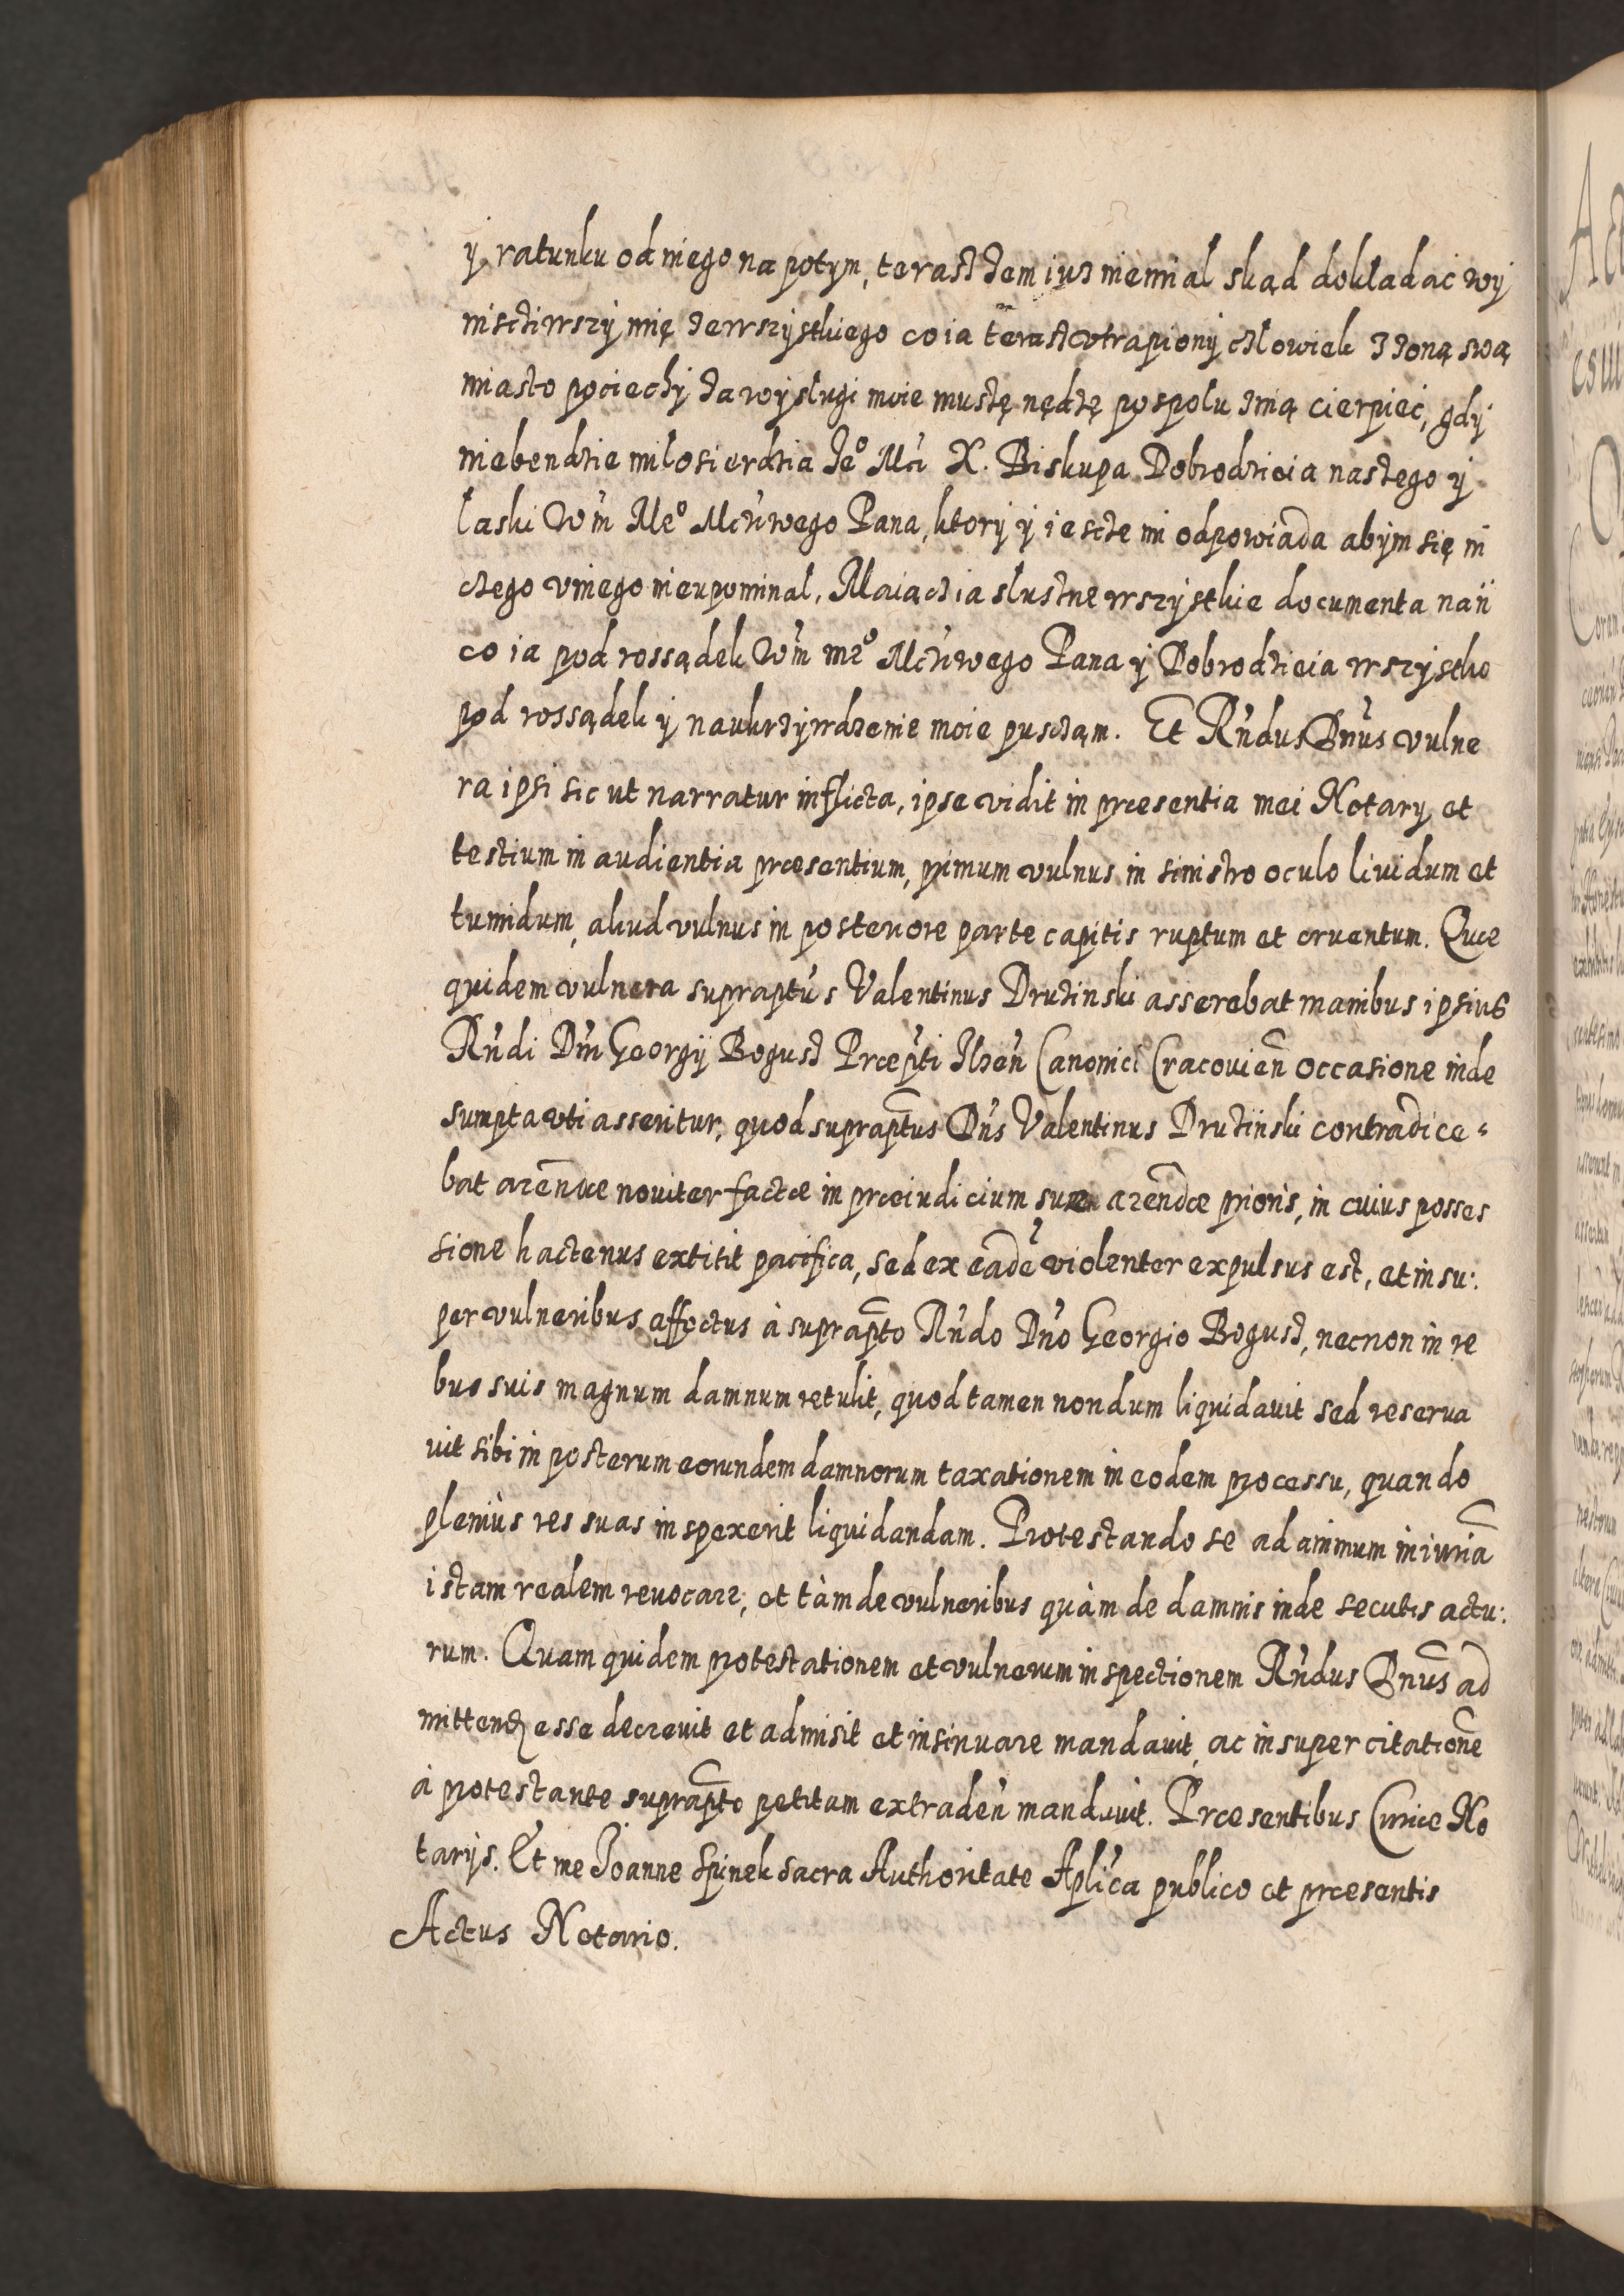 ӱ ratunku od niego na potym, terasz żem iuż niemiał skąd dokładac wӱ
nisciwszӱ mię zewszӱstkiego co ia teraz vtrapionӱ człowiek z żoną swą
miasto pociechӱ za wӱsługi moie muszę nędzę pospołu znią cierpieć, gdӱ
niebendzie miłosierdzia Je° Mci X. Biskupa Dobrodzieia naszego ӱ
łaski Wm̃ Me° Mciwego Pana, ktorӱ ӱ ieszcze mi odpowiada abӱm się ni
czego vniego nieupominał, Maiącz ia słuszne wszӱstkie documenta nań
co ia pod rossądek Wm̃ me° Mciwego Pana ӱ Dobrodzieia wszӱstko
pod rossądek ӱ naukrzӱwdzenie moie pusczam. Et Rndus Dnus vulne
ra ipsi sic ut narratur inflicta, ipse vidit in præsentia mei Notarӱ et
testium in audientia præsentium, primum vulnus in sinistro oculo liuidum et
tumidum, aliud vulnus in posteriore parte capitis ruptum et cruentum. Quæ
quidem vulnera supraptus Valentinus Druzinski asserebat manibus ipsius
Rndi Dni Georgӱ Bogusz Præpti Ilzen Canonici Cracouien occasione inde
sumpta vti asseritur, quod supraptus Dns Valentinus Druzinski contradice-
bat arendæ nouiter factæ in præiudicium suæ arendæ prioris, in cuius posses
sione hactenus extitit pacifica, sed ex eadē violenter expulsus est, et insu:
per vulneribus affectus à suprapto Rndo Dno Georgio Bogusz, necnon in re
bus suis magnum damnum retulit, quod tamen nondum liquidauit sed reserua
uit sibi in posterum eorundem damnorum taxationem in eodem processu, quando
pleniùs res suas inspexerit liquidandam. Protestando se ad animum iniuriā
istam realem reuocare, et tàm de vulneribus quàm de damnis inde secutis actu:
rum. Quam quidem protestationem et vulnerum inspectionem Rndus Dnus ad
mittend esse decreuit et admisit et insinuare mandauit, ac insuper citationē
à protestante suprapto petitam extraden mandauit. Præsentibus Curiæ No
tarӱs. Et me Joanne Spinek sacra Authoritate Aplica publico et præsentis
Actus Notario.